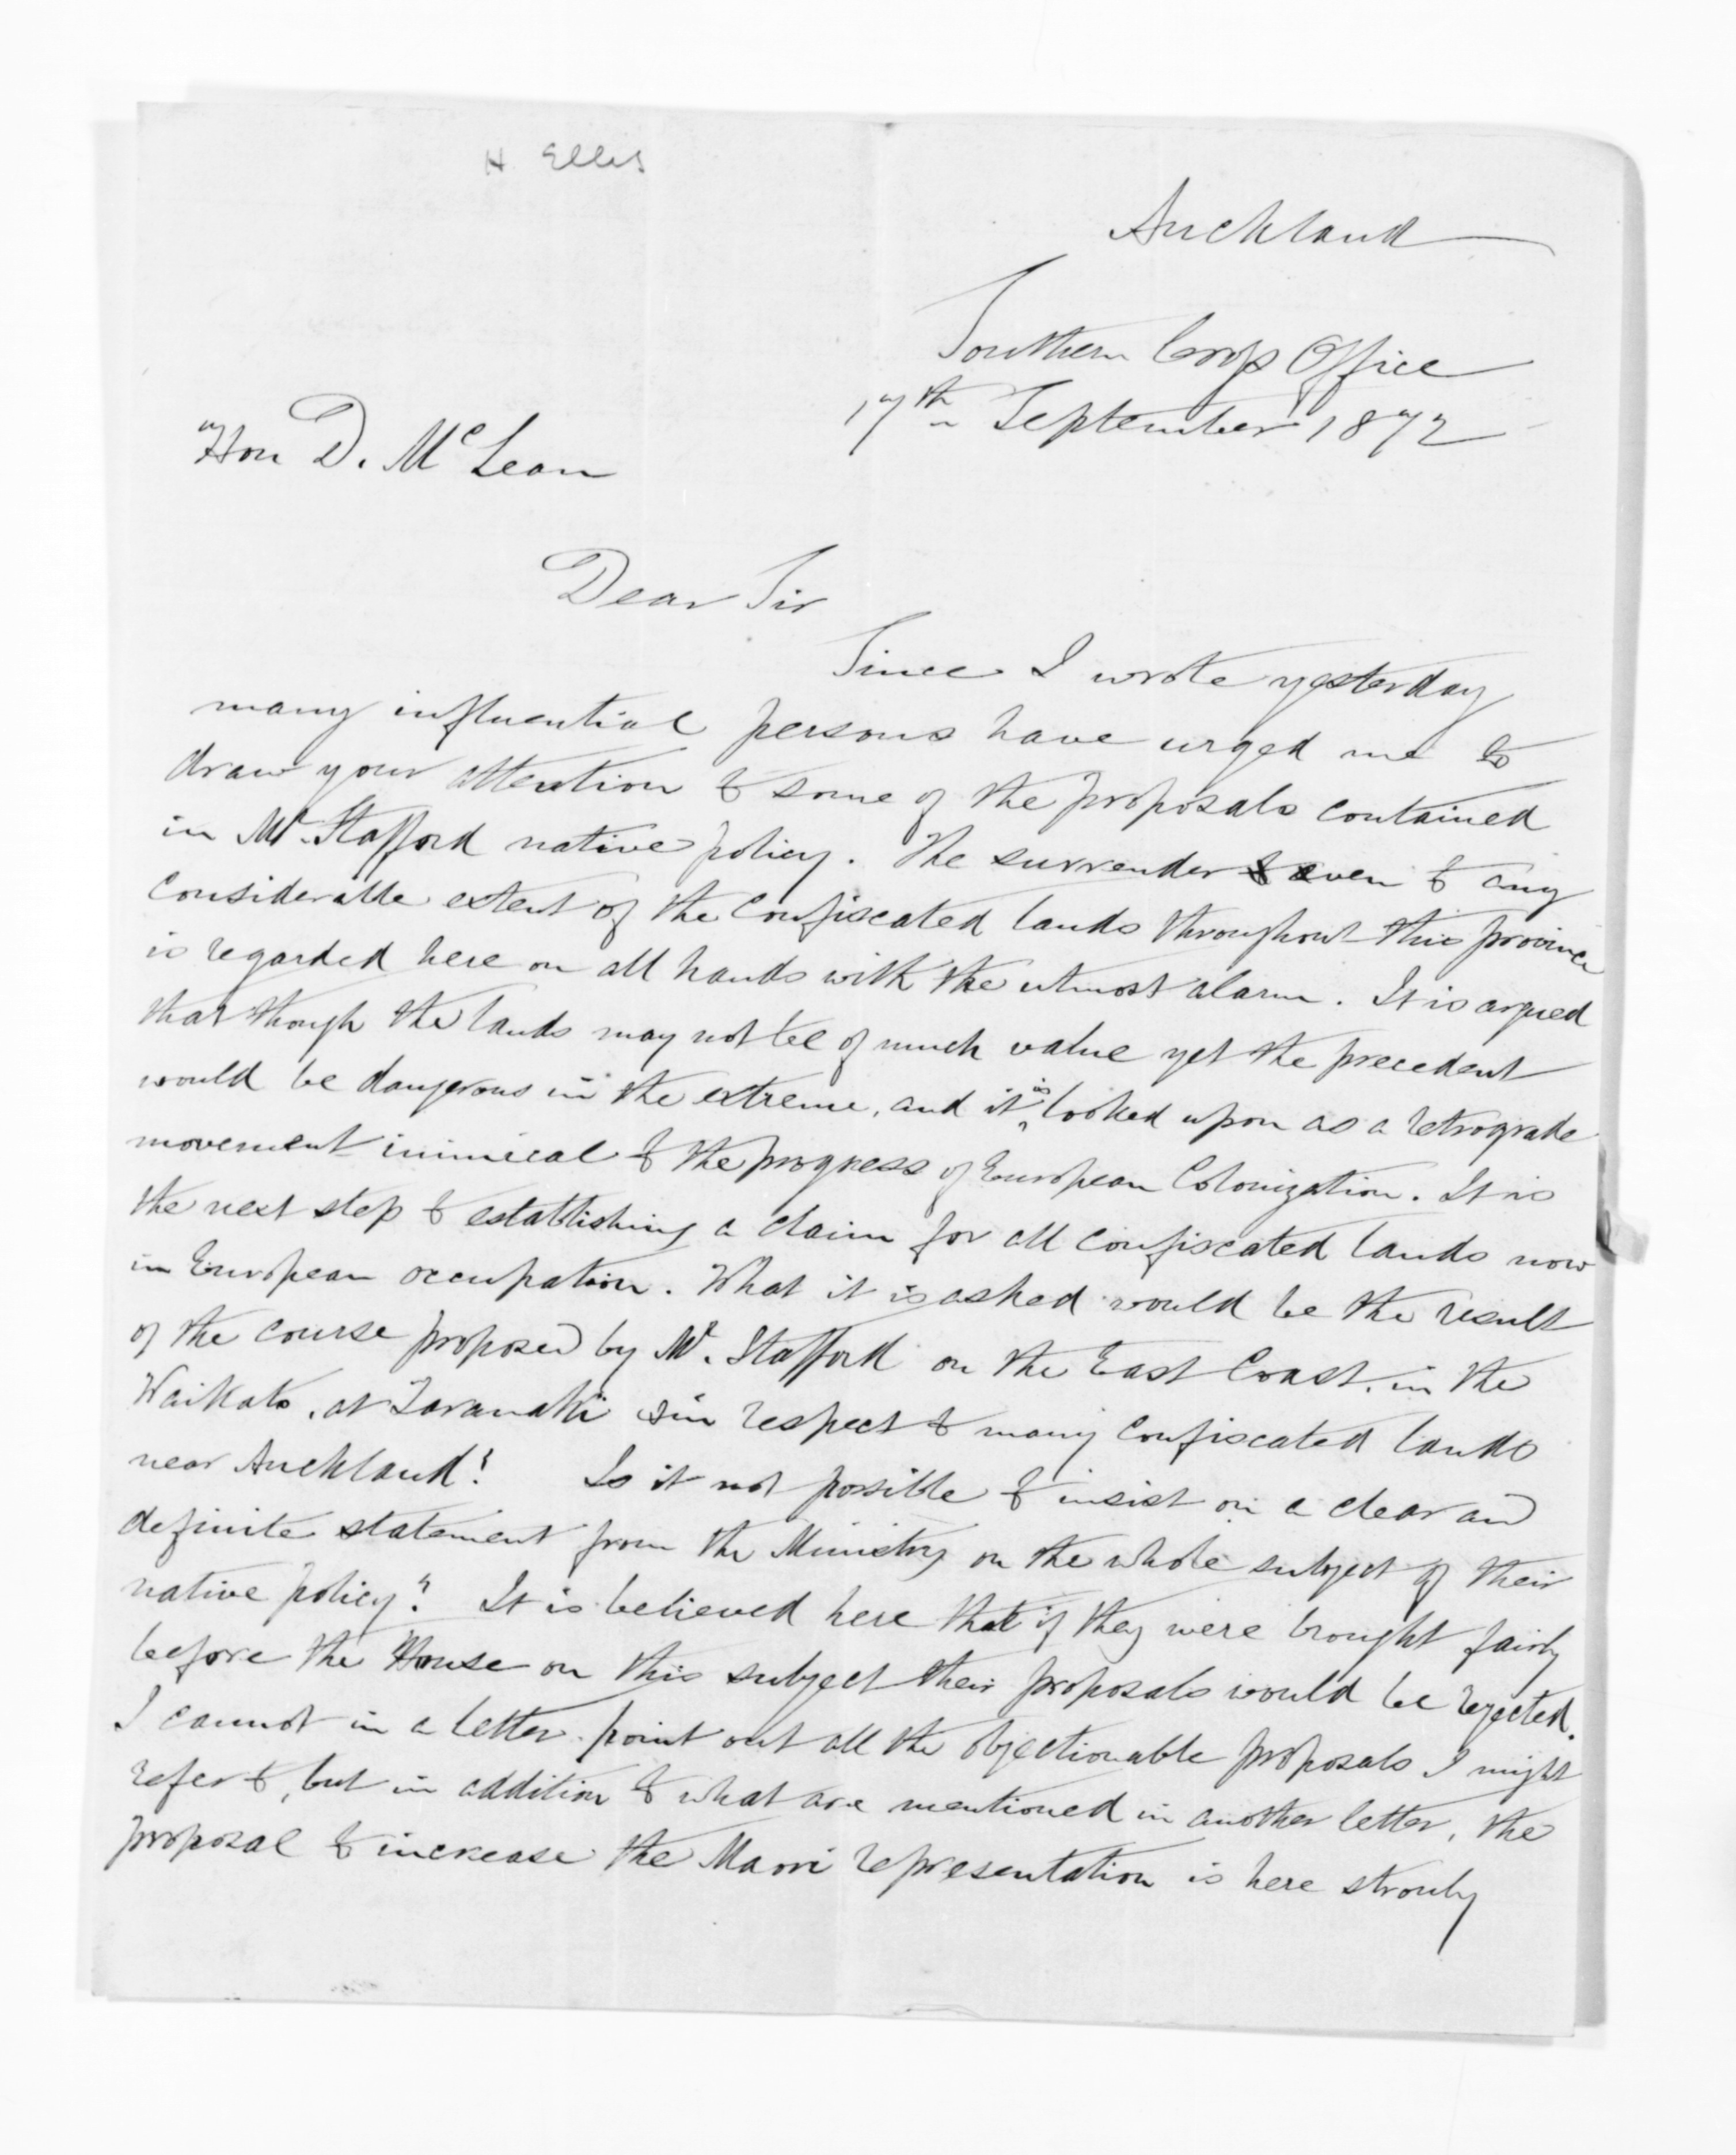 H Ellis
Auckland
Southern Cross Office
17th September 1872
Hon D. McLean
Dear Sir
Since I wrote yesterday
many influential persons have urged me to
draw your attention to some of the proposals contained
in Mr. Stafford native policy. The surrender even to any
considerable extent of the confiscated lands throughout this province
is regarded here on all hands with the utmost alarm. It is argued
that though the lands may not be of much value yet the precedent
would be dangerous in the extreme, and it is looked upon as a retrograde
movement inimical to the progress of European Colonization. It is
the next step to establishing a claim for all confiscated lands now
in European occupation. What it is asked would be the result
of the course proposed by Mr. Stafford on the East Coast, in the
Waikato, at Taranaki in respect to many confiscated lands
near Auckland? Is it not possible to insist on a clear and
definite statement from the Ministry on the whole subject of their
native policy? It is believed here that if they were brought fairly
before the House on this subject their proposals would be rejected.
I cannot in a letter point out all the objectionable proposals I might
refer to, but in addition to what are mentioned in another letter, the
proposal to increase the Maori representation is here strongly